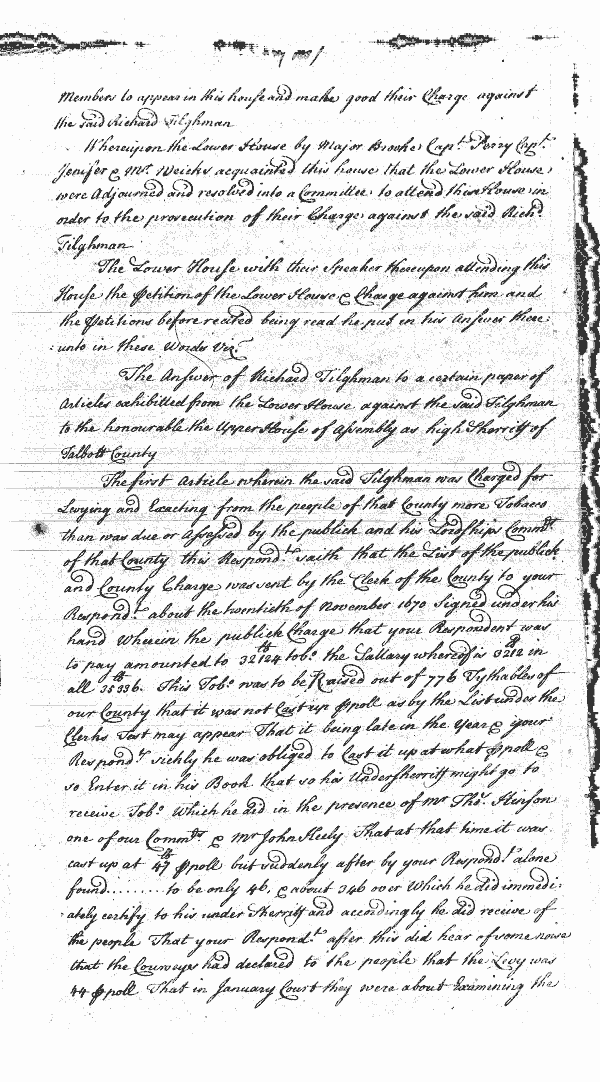 Members to appear in this house and make good their Charge against
the said Richard Tilghman
Whereupon the Lower House by Major Brooke Capt. Perry Capt.
Jenifer & Mr. Weicks acquainted this house that the Lower House
were Adjourned and resolved into a Committee to attend this House in
order to the prosecution of their Charge against the said Richd.
Tilghman
The Lower House with their Speaker thereupon attending this
House the Petition of the Lower House & Charge against him and
the Petitions before recited being read he put in his Answer there:
:unto in these Words Viz.
The Answer of Richard Tilghman to a certain paper of
Articles exhibitted from the Lower House against the said Tilghman
to the honourable the Upper House of Assembly as high Sherriff of
Talbott County
The first Article wherein the said Tilghman was Charged for
Levying and Exacting from the people of that County more Tobacco
than was due or Assessed by the publick and his Lordships Commrs.
of that County this Respondt. saith that the List of the publick
and County Charge was sent by the Clerk of the County to your
Respondt. about the twentieth of November 1670 Signed under his
hand Wherein the publick Charge that your Respondent was
to pay amounted to 32124 lb tobo. the Sallary whereof is 3212 lb in
all 35336 lb. This Tobo. was to be Raised out of 776 Tythables of
our County that it was not Cast up ⅌ poll as by the List under the
Clerks Test may appear That it being late in the Year & your
Respondt. sickly he was obliged to Cast it up at what ⅌ poll &
so Enter it in his Book that so his Undersherriff might go to
receive Tobo. Which he did in the presence of mr Thos. Hinson
one of our Commrs. & Mr John Keely That at that time it was
cast up at 47 lb ⅌ poll but suddenly after by your Respondt. alone
found......... to be only 46, & about 346 over Which he did immedi:
:ately certify to his under Sherriff and acordingly he did receive of
the people That your Respondt. after this did hear of some noise
that the Courveyes had declared to the people that the Levy was
44 ⅌ poll That in January Court they were about Examining the